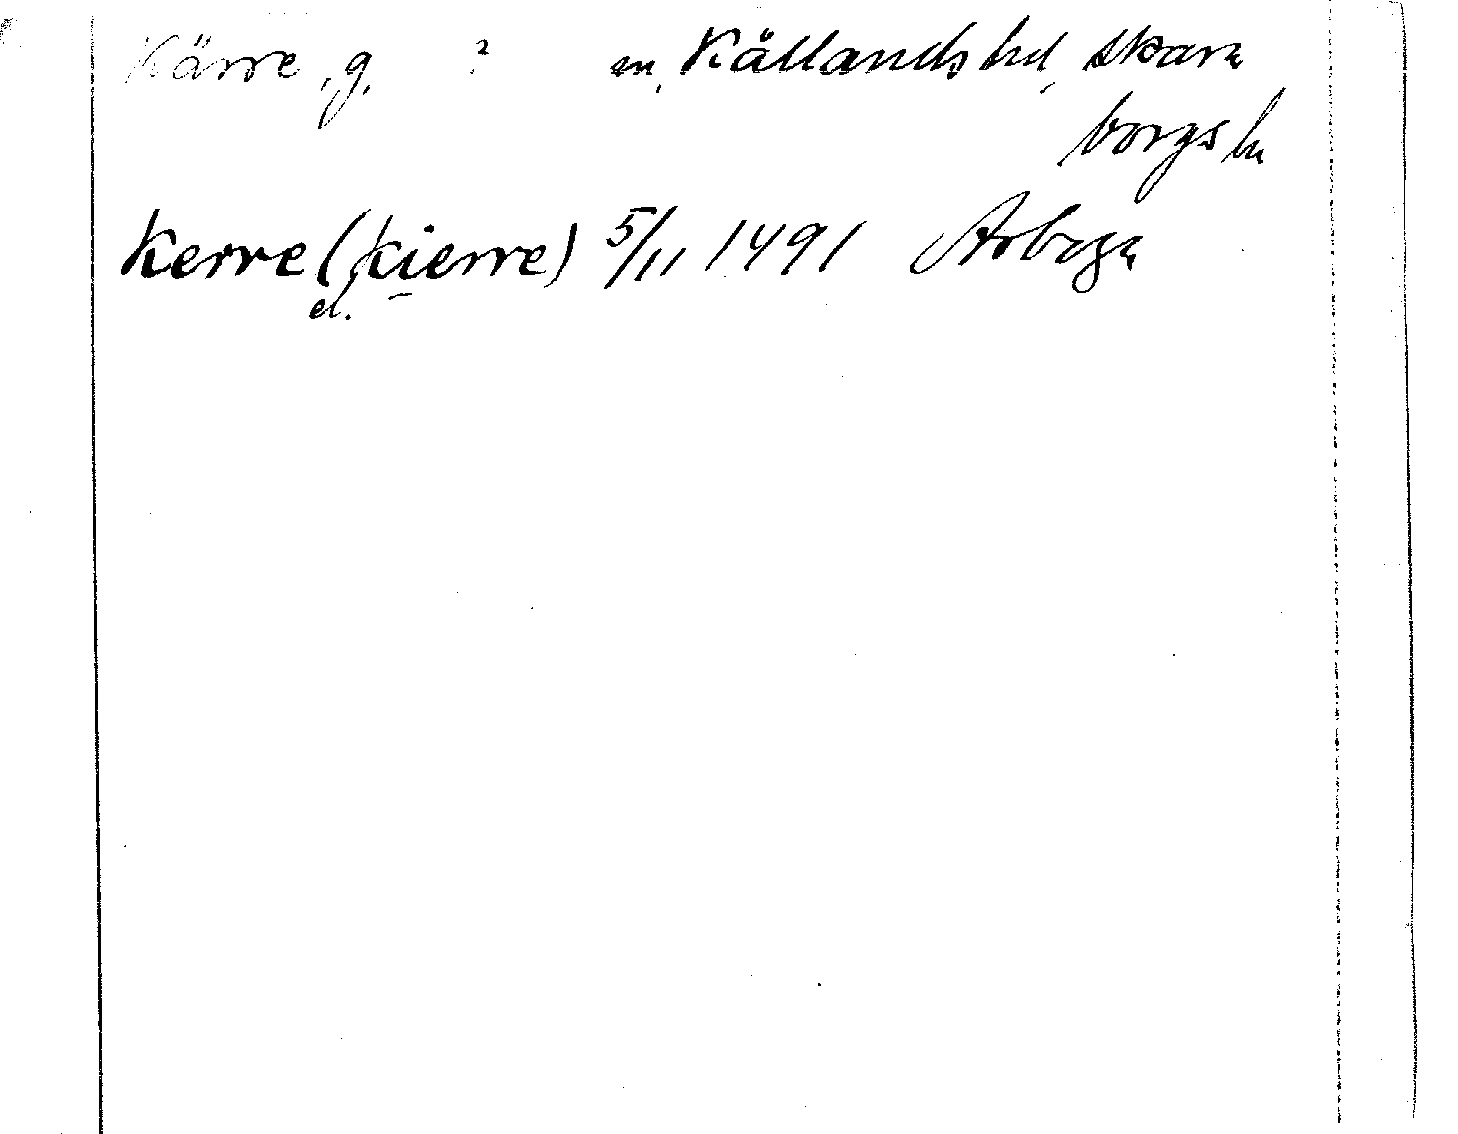 Kärre, g. ? sn, Kållands hd, Skara
borgs ln
Kerre (kierre) 5/11 1491 Arboga
el.